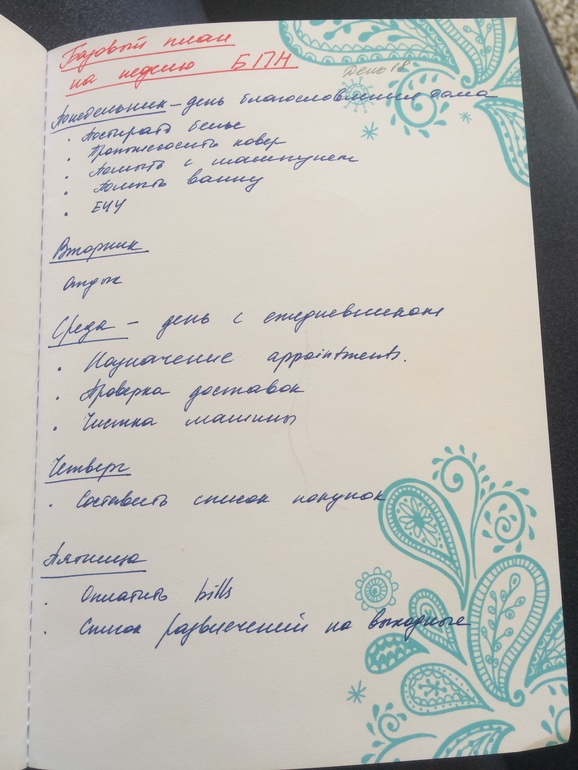 Базовый план
на неделю БПН
День 18
Понедельник – день благословления дома
• Постирать белье
• Пропылесосить ковер
• Помыть с шампунем
• Помыть ванну
• ЕЧЧ
Вторник
отдых
Среда – день с ежедневником
• Назначение appointments.
• Проверка доставок
• Чистка машины
Четверг
• Составить список покупок
Пятница
• Оплатить bills
• Список развлечений на выходные